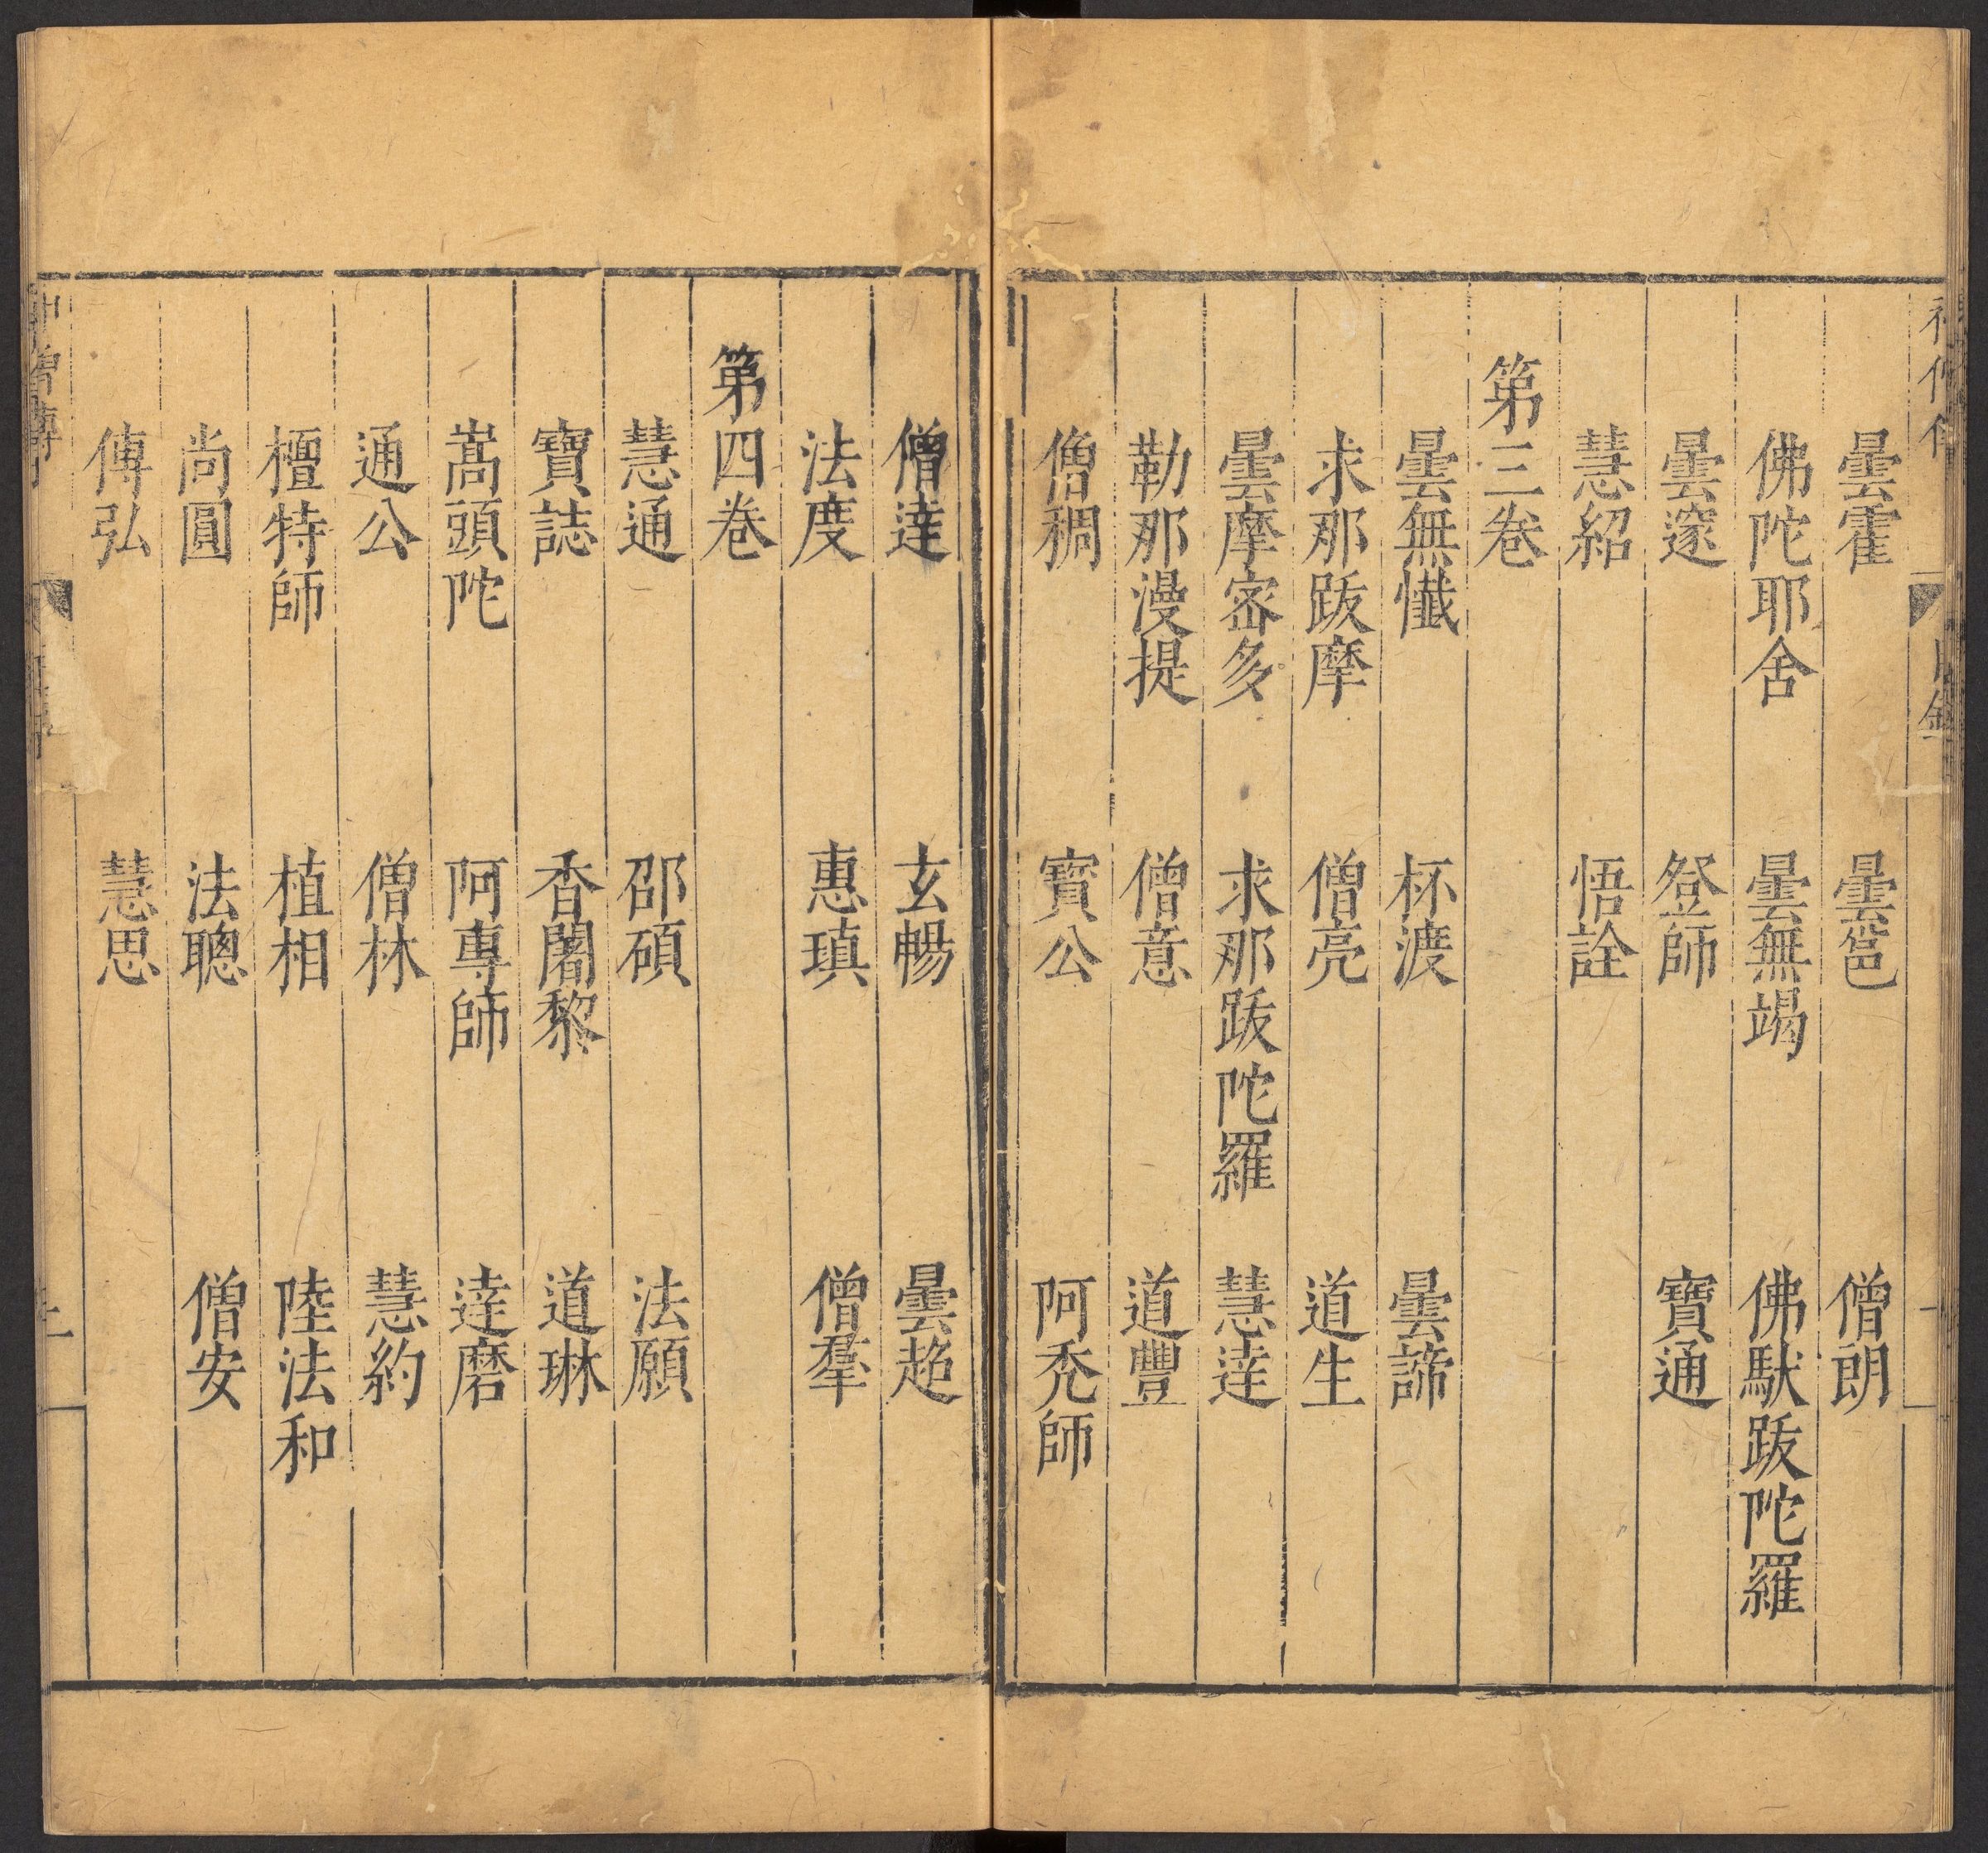 曇霍 曇邕 僧朗
佛陀耶舍 曇無竭 佛馱跋陀羅
曇邃 癹師 寶通
慧紹 悟詮
第三卷
曇無懺 杯渡 曇諦
求那跋摩 僧亮 道生
曇摩密多 求那跋陀羅 慧達
勒那漫提 僧意 道豐
僧稠 寶公 阿禿師
僧達 玄暢 曇超
法度 惠瑱 僧羣
第四卷
慧通 邵碩 法願
寶誌 香闍黎 道琳
嵩頭陀 阿專師 達磨
通公 僧林 慧約
檀特師 植相 陸法和
尚圓 法聰 僧安
傅弘 慧思
神僧傳